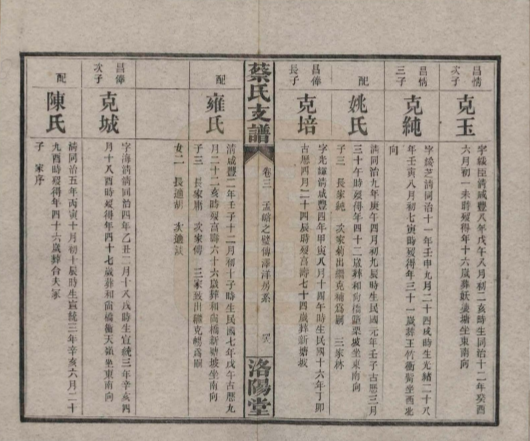 昌情
次子
克玉
字鎮臣清咸豐八年戊午八月初二亥時生同治十二年癸酉
六月初一未時歿得年十六歲葬
坐東南向
昌情
三子
克純
字 芝清同治十一年壬申九月二十四戌時生光緒二十八
年壬寅八月初七寅時歿得年三十一歲葬王竹衝 坐酉
向
配
姚氏
清同治九年庚午四月初九辰時生民國元年壬子古歷三月
三十午時歿得年四十二歲葬和尚橋 坐東南向
子三 長家純 次家菊出繼克補爲嗣 三家林
昌偉
長子
克培
字光 清咸豐四年甲寅八月十四午時生民國十六年丁卯
古歷四月二十四辰時歿富壽七十四歲葬新塘坡
配
雍氏
清咸豐二年壬子十二月初十子時生民國七年戊午古歷九
月二十二亥時歿富壽六十六歲葬和尚橋新塘坡坐東南向
子三 長家 次家傳 三家 出繼克 爲嗣
女二 長適胡 次適
蔡氏支譜
卷三
洛陽堂
昌偉
次子
克城
字海清清同治四年乙丑二月十八戌時生宣統三年辛亥四
月十八酉時歿得年四十七歲葬和尚橋衝天嶺坐東南向
配
陳氏
清同治五年丙寅十月初十辰時生宣統三年辛亥六月二十
九酉時歿得年四十六歲葬合夫冢
子 家序